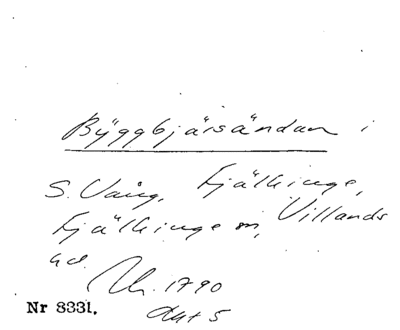 Byggbjärsändan i
S. Vång, Fjälkinge,
Fjälkinge sn, Villands
hd. 1790
akt 5
Nr 8331.